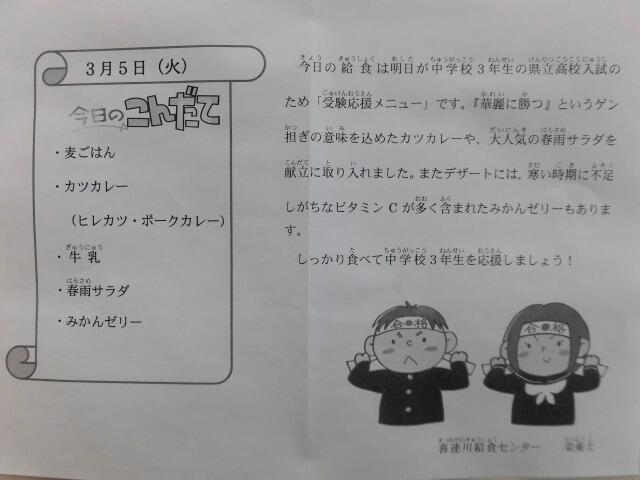 3月5日（火）
今日のこんだて
・麦ごはん
・カツカレー
（ヒレカツ・ポークカレー）
・牛乳
・春雨サラダ
・みかんゼリー
今日の給食は明日が中学校3年生の県立高校入試の
ため「受験応援メニュー」です。『華麗に勝つ』というゲン
担ぎの意味を込めたカツカレーや，大人気の春雨サラダを
献立に取り入れました。またデザートには，寒い時期に不足
しがちなビタミンCが多く含まれたみかんゼリーもありま
す。
しっかり食べて中学校3年生を応援しましょう！
合格
合格
喜連川給食センター　栄養士